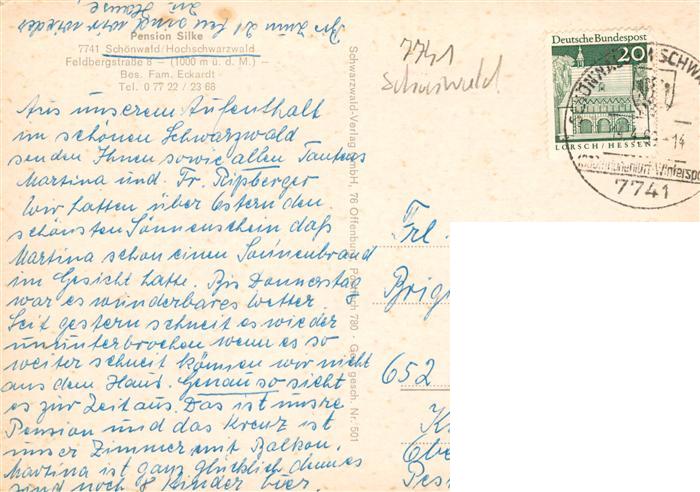 Bis zum
zu Hause,
Pension Silke
7741 Schönwald/Hochschwarzwald
Feldbergstraße 8 – (1000 m ü. d. M.) –
Bes. Fam. Eckardt
Tel. 0 77 22 / 23 68
Aus unserem Aufenthalt
im schönen Schwarzwald
senden Ihnen sowie allen Tanten
Martina und Fr. Ripberger
Wir hatten über Ostern den
schönsten Sonnenschein daß
Martina schon einen Sonnenbrand
im Gesicht hatte. Bis Donnerstag
war es wunderbares Wetter
Seit gestern schneit es wieder
ununterbrochen wenn es so
weiter schneit können wir nicht
aus dem Haus. Genau so sieht
es zur Zeit aus. Das ist unsre
Pension und das Kreuz ist
unser Zimmer mit Balkon.
Martina ist ganz glücklich denn es
sind noch 8 Kinder hier.
Schwarzwald-Verlag GmbH, 76 Offenburg, Postfach 780 · Ges. gesch. Nr. 501
7741
Schönwald
Deutsche Bundespost
20
LORSCH/HESSEN
SCHÖNWALD IM SCHWARZW
-14
Wintersport
7741
Frl
Brig
652
K
Obe